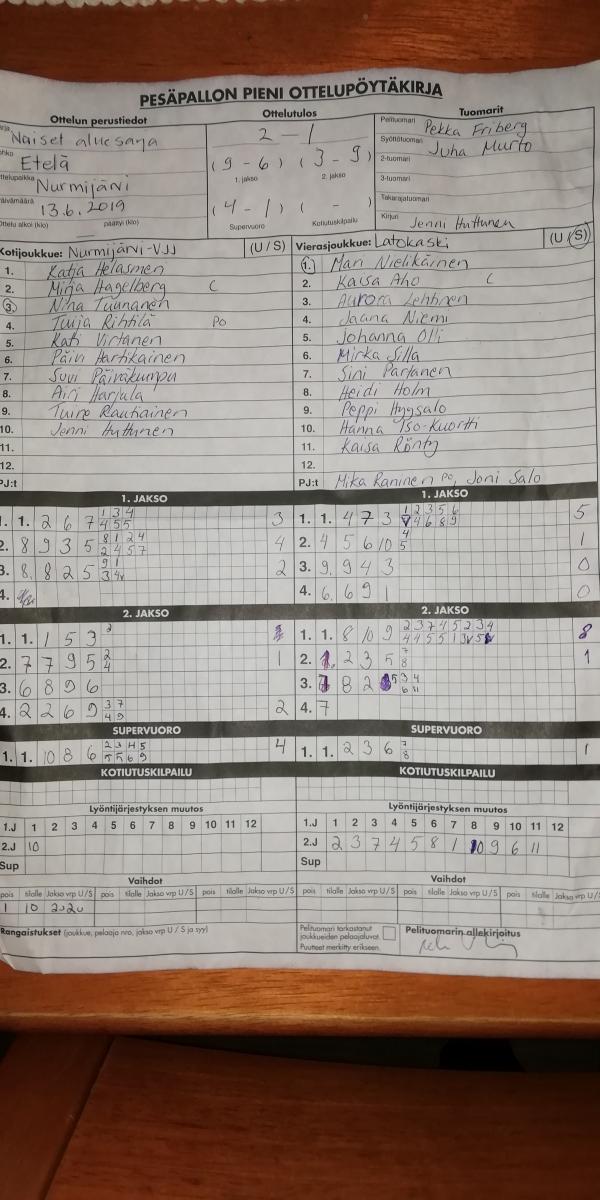 PESÄPALLON PIENI OTTELUPÖYTÄKIRJA
Ottelun perustiedot
Naiset aluesarja
Etelä
Nurmijärvi
13.6.2019
Ottelu alkoi (klo) päättyi (klo)
Ottelutulos
2 - 1
(9 - 6) (3 - 9)
1. jakso 2. jakso
(4 - 1) ( - )
Supervuoro Kotiutuskilpailu
Tuomarit
Pelituomari Pekka Friberg
Syöttötuomari Juha Murto
2-tuomari
3-tuomari
Takarajatuomari
Kirjuri Jenni Huttunen
Kotijoukkue: Nurmijärvi-VJJ (U / S)
1. Katja Helasmen
2. Mirja Hagelberg C
3. Nina Tuunanen
4. Tuija Rihtilä PO
5. Kati Virtanen
6. Päivi Hartikainen
7. Suvi Päiväkumpu
8. Airi Harjula
9. Tuire Rautiainen
10. Jenni Huttunen
11.
12.
PJ:t
Vierasjoukkue: Latokaski (U / S)
1. Mari Nielikäinen
2. Kaisa Aho C
3. Aurora Lehtinen
4. Jaana Niemi
5. Johanna Olli
6. Mirka Silla
7. Sini Partanen
8. Heidi Holm
9. Peppi Hyysalo
10. Hanna Iso-Kuortti
11. Kaisa Rönty
12.
PJ:t Mika Raninen PO, Joni Salo
1. JAKSO
1. 1. 2 6 7 1 3 4 3
4 5 5
2. 8 9 3 5 8 1 2 4 4
2 4 5 7
3. 8. 8 2 5 9 1 2
4.
1. JAKSO
1. 1. 4 7 3 1 2 3 5 6 5
4 6 8 9
2. 4 5 6 10 4 1
5
3. 9. 9 4 3 0
4. 6. 6 9 1 0
2. JAKSO
1. 1. 1 5 3 2
2. 7 7 9 5 2 1
4
3. 6 8 9 6
4. 2 2 6 9 3 7 2
4 9
2. JAKSO
1. 1. 8 10 9 2 3 7 4 5 2 3 4 8
2. 2 3 5 7 1
8
3. 8 2 5 3 4
6 11
4. 7
SUPERVUORO
1. 1. 10 8 6 2 3 4 5 4
5 5 6 9
SUPERVUORO
1. 1. 2 3 6 7 1
8
KOTIUTUSKILPAILU
KOTIUTUSKILPAILU
Lyöntijärjestyksen muutos
1.J 1 2 3 4 5 6 7 8 9 10 11 12
2.J 10
Sup
Lyöntijärjestyksen muutos
1.J 1 2 3 4 5 6 7 8 9 10 11 12
2.J 2 3 7 4 5 8 1 10 9 6 11
Sup
Vaihdot
pois tilalle Jakso vrp U/S pois tilalle Jakso vrp U/S pois tilalle Jakso vrp U/S
1 10 2.2u
Vaihdot
pois tilalle Jakso vrp U/S pois tilalle Jakso vrp U/S pois tilalle Jakso vrp U/S
Rangaistukset (joukkue, pelaaja nro, jakso vrp U / S ja syy)
Pelituomari tarkastanut
joukkueiden pelaajaluvat.
Puutteet merkitty erikseen.
Pelituomarin allekirjoitus